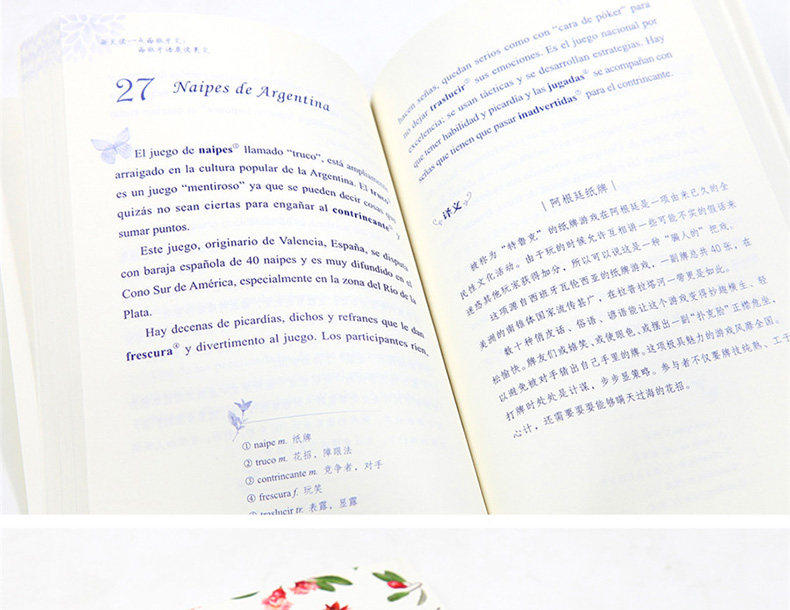 27 Naipes de Argentina
El juego de naipes① llamado “truco”, está ampliamente
arraigado en la cultura popular de la Argentina. El truco
es un juego “mentiroso” ya que se pueden decir cosas que
quizás no sean ciertas para engañar al contrincante③ y
sumar puntos.
Este juego, originario de Valencia, España, se disputa
con baraja española de 40 naipes y es muy difundido en el
Cono Sur de América, especialmente en la zona del Río de la
Plata.
Hay decenas de picardías, dichos y refranes que le dan
frescura④ y divertimento al juego. Los participantes ríen,
① naipe m. 纸牌
② truco m. 花招，障眼法
③ contrincante m. 竞争者，对手
④ frescura f. 玩笑
traslucir tr. 表露，显露
hacen señas, quedan serios como con “cara de póker” para
no dejar traslucir⑤ sus emociones. Es el juego nacional por
excelencia: se usan tácticas y se desarrollan estrategias. Hay
que tener habilidad y picardía y las jugadas⑥ se acompañan con
señas que tienen que pasar inadvertidas⑦ para el contrincante.
译文
| 阿根廷纸牌 |
被称为“特鲁克”的纸牌游戏在阿根廷是一项由来已久的全
民性文化活动。由于玩的时候允许互相说一些可能不实的假话来
迷惑其他玩家获得加分，所以可以说这是一种“骗人的”把戏。
这项源自西班牙瓦伦西亚的纸牌游戏，一副牌总共 40 张，在
美洲的南锥体国家流传甚广，在拉普拉塔河一带更是如此。
数十种俏皮话、俗语、谚语能让这个游戏变得妙趣横生、轻
松愉快。牌友们或嬉笑、或使眼色、或摆出一副“扑克脸”正襟危坐，
以避免被对手猜出自己手里的牌。这项极具魅力的游戏风靡全国。
打牌时处处是计谋，步步显策略。参与者不仅要牌技纯熟、工于
心计，还需要耍耍能够瞒天过海的花招。